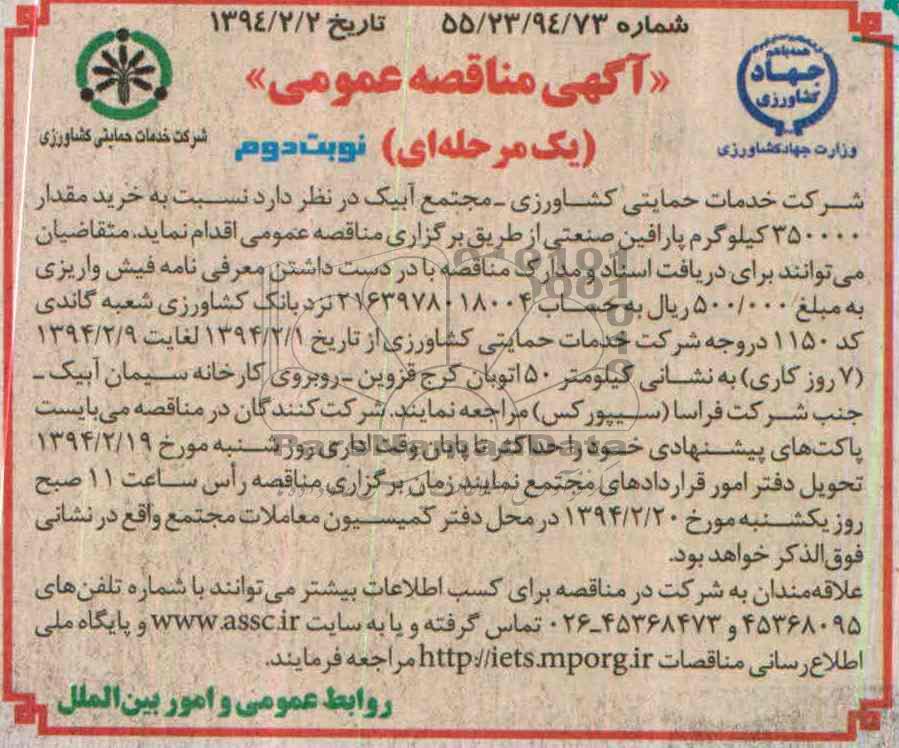 شماره ۵۵/۲۳/۹٤/۷۳ تاریخ ۱۳۹٤/۲/۲
همه با هم
جهاد
کشاورزی
وزارت جهاد کشاورزی
شرکت خدمات حمایتی کشاورزی
«آگهی مناقصه عمومی»
(یک مرحله‌ای) نوبت دوم
شرکت خدمات حمایتی کشاورزی - مجتمع آبیک در نظر دارد نسبت به خرید مقدار
۳۵۰۰۰۰ کیلوگرم پارافین صنعتی از طریق برگزاری مناقصه عمومی اقدام نماید. متقاضیان
می‌توانند برای دریافت اسناد و مدارک مناقصه با در دست داشتن معرفی نامه فیش واریزی
به مبلغ ۵۰۰/۰۰۰ ریال به حساب ۲۱۶۳۹۷۸۰۱۸۰۰۴ نزد بانک کشاورزی شعبه گاندی
کد ۱۱۵۰ در وجه شرکت خدمات حمایتی کشاورزی از تاریخ ۱۳۹۴/۲/۱ لغایت ۱۳۹۴/۲/۹
(۷ روز کاری) به نشانی کیلومتر ۵۰ اتوبان کرج قزوین - روبروی کارخانه سیمان آبیک -
جنب شرکت فراسا (سیپورکس) مراجعه نمایند. شرکت‌کنندگان در مناقصه می‌بایست
پاکت‌های پیشنهادی خود را حداکثر تا پایان وقت اداری روز شنبه مورخ ۱۳۹۴/۲/۱۹
تحویل دفتر امور قراردادهای مجتمع نمایند زمان برگزاری مناقصه رأس ساعت ۱۱ صبح
روز یکشنبه مورخ ۱۳۹۴/۲/۲۰ در محل دفتر کمیسیون معاملات مجتمع واقع در نشانی
فوق‌الذکر خواهد بود.
علاقه‌مندان به شرکت در مناقصه برای کسب اطلاعات بیشتر می‌توانند با شماره تلفن‌های
۴۵۳۶۸۰۹۵ و ۴۵۳۶۸۴۷۳-۰۲۶ تماس گرفته و یا به سایت www.assc.ir و پایگاه ملی
اطلاع‌رسانی مناقصات http://iets.mporg.ir مراجعه فرمایند.
روابط عمومی و امور بین‌الملل